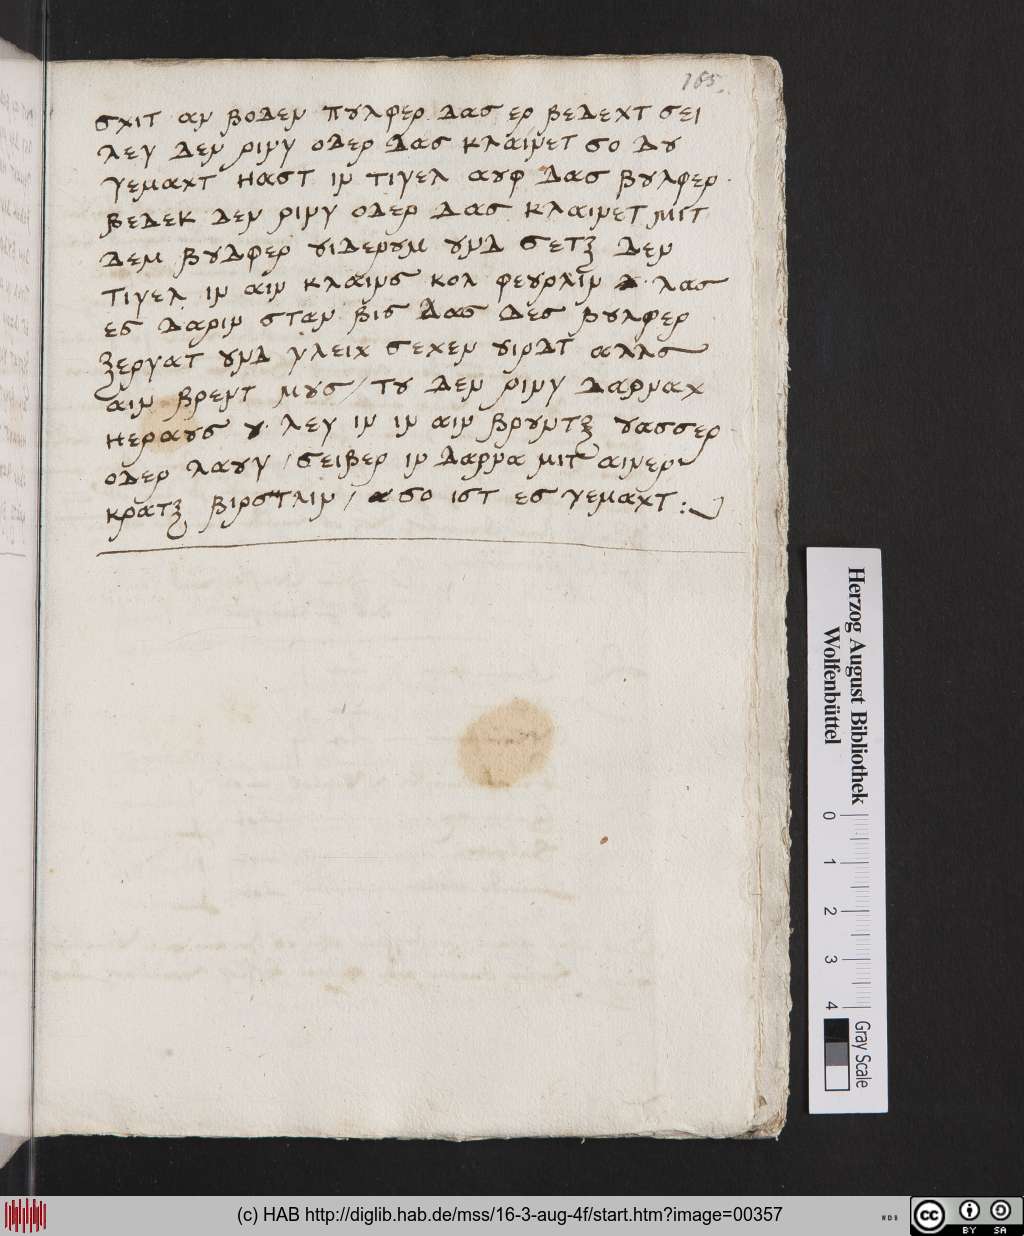 165.
σχιτ αν βοδεν πυλφερ δασ ερ βεδεχτ σει
λεγ δεν ρινγ οδερ δασ κλαινετ σο δυ
γεμαχτ Hαστ ιν τιγελ αυφ δασ βυλφερ.
βεδεκ δεν ρινγ οδερ δασ κλαινετ μιτ
δεμ βυλφερ υιδερυμ υνδ σετʒ δεν
τιγελ ιν αιν κλαινς κολ φευρλιν λασ
ες δαριν σταν βις δασ δες βυλφερ
ʒεργατ υνδ γλειχ σεχεν υιρδτ αλλς
αιν βρεντ μυς / τυ δεν ρινγ δαρναχ
Hεραυς υ· λεγ ιν ιν αιν βρυντʒ υασσερ
οδερ λαυγ / σειβερ ιν δαρνα μιτ αινερ
κρατʒ βιρστλιν / α σο ιστ ες γεμαχτ :
Herzog August Bibliothek
Wolfenbüttel
0 1 2 3 4
Gray Scale
(c) HAB http://diglib.hab.de/mss/16-3-aug-4f/start.htm?image=00357
WDB
cc BY SA